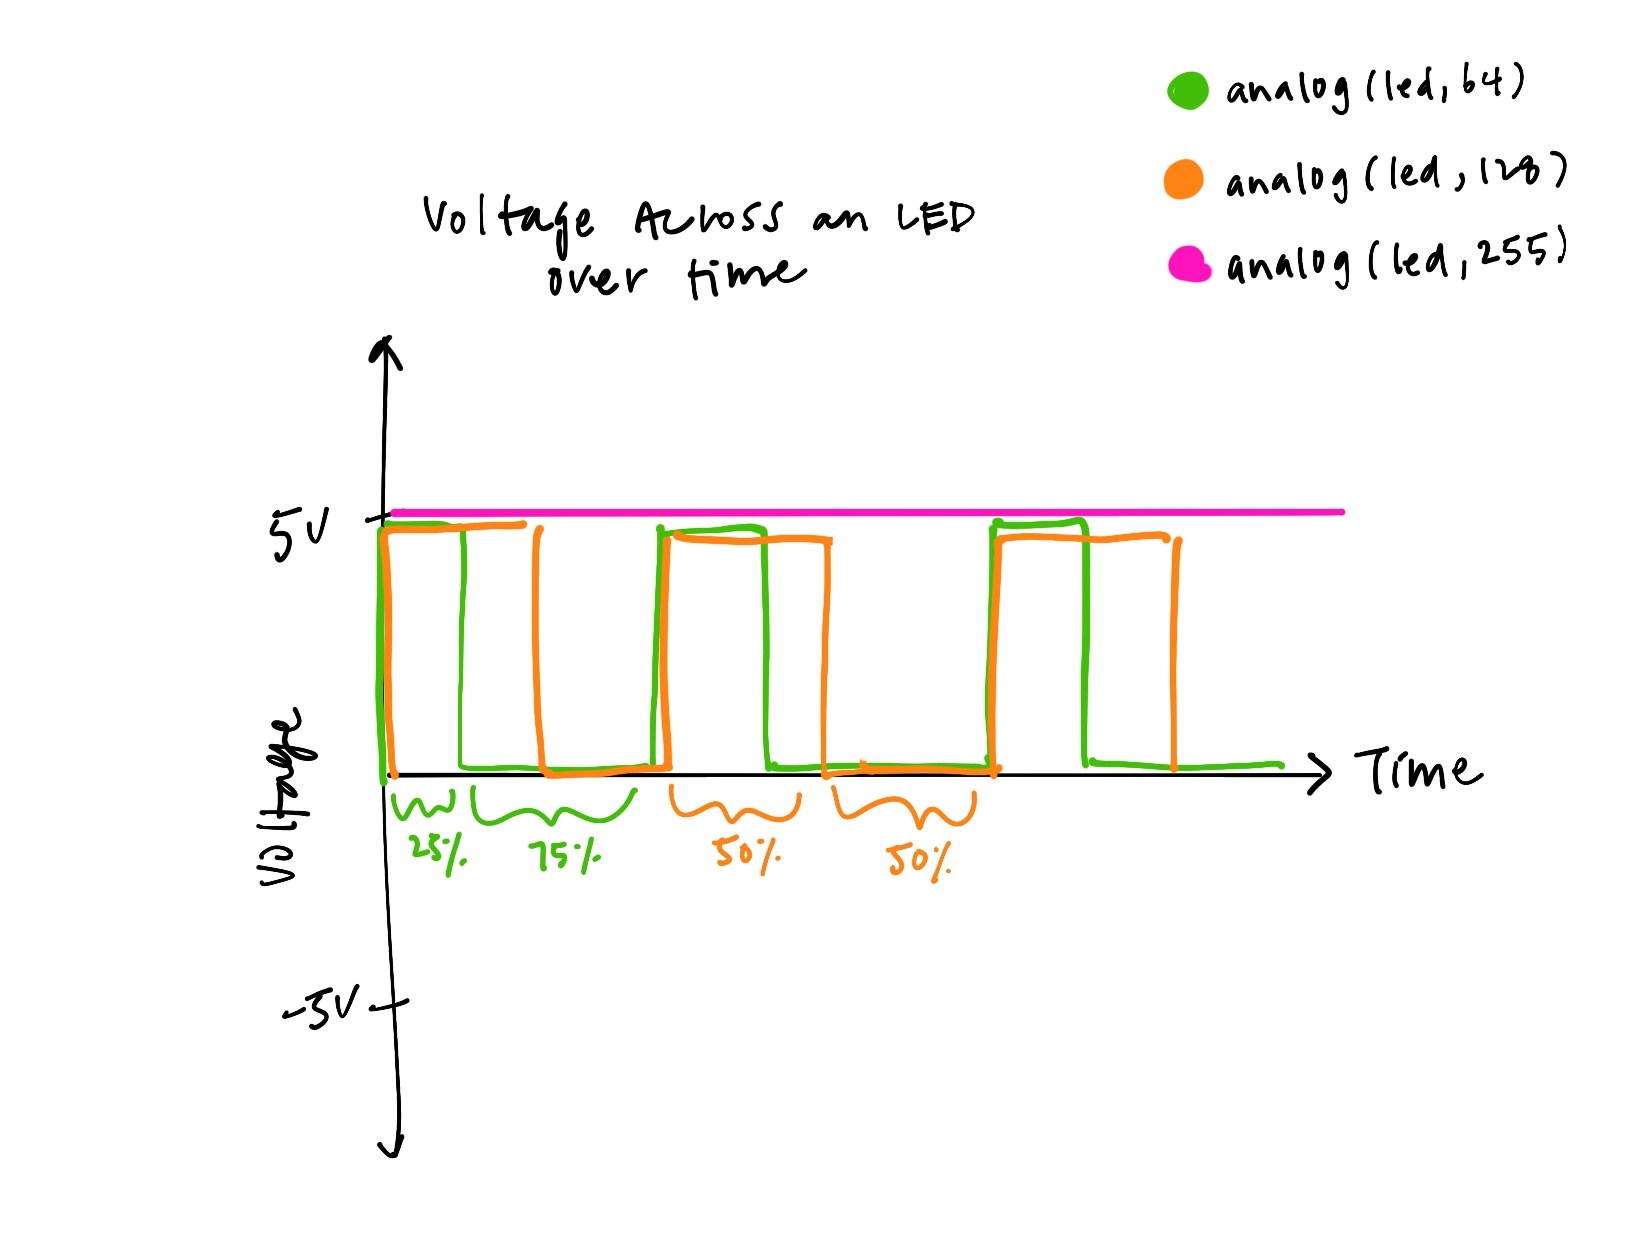 analog(led, 64)
analog(led, 128)
analog(led, 255)
Voltage Across an LED
over time
5V
Voltage
Time
25%
75%
50%
50%
-5V